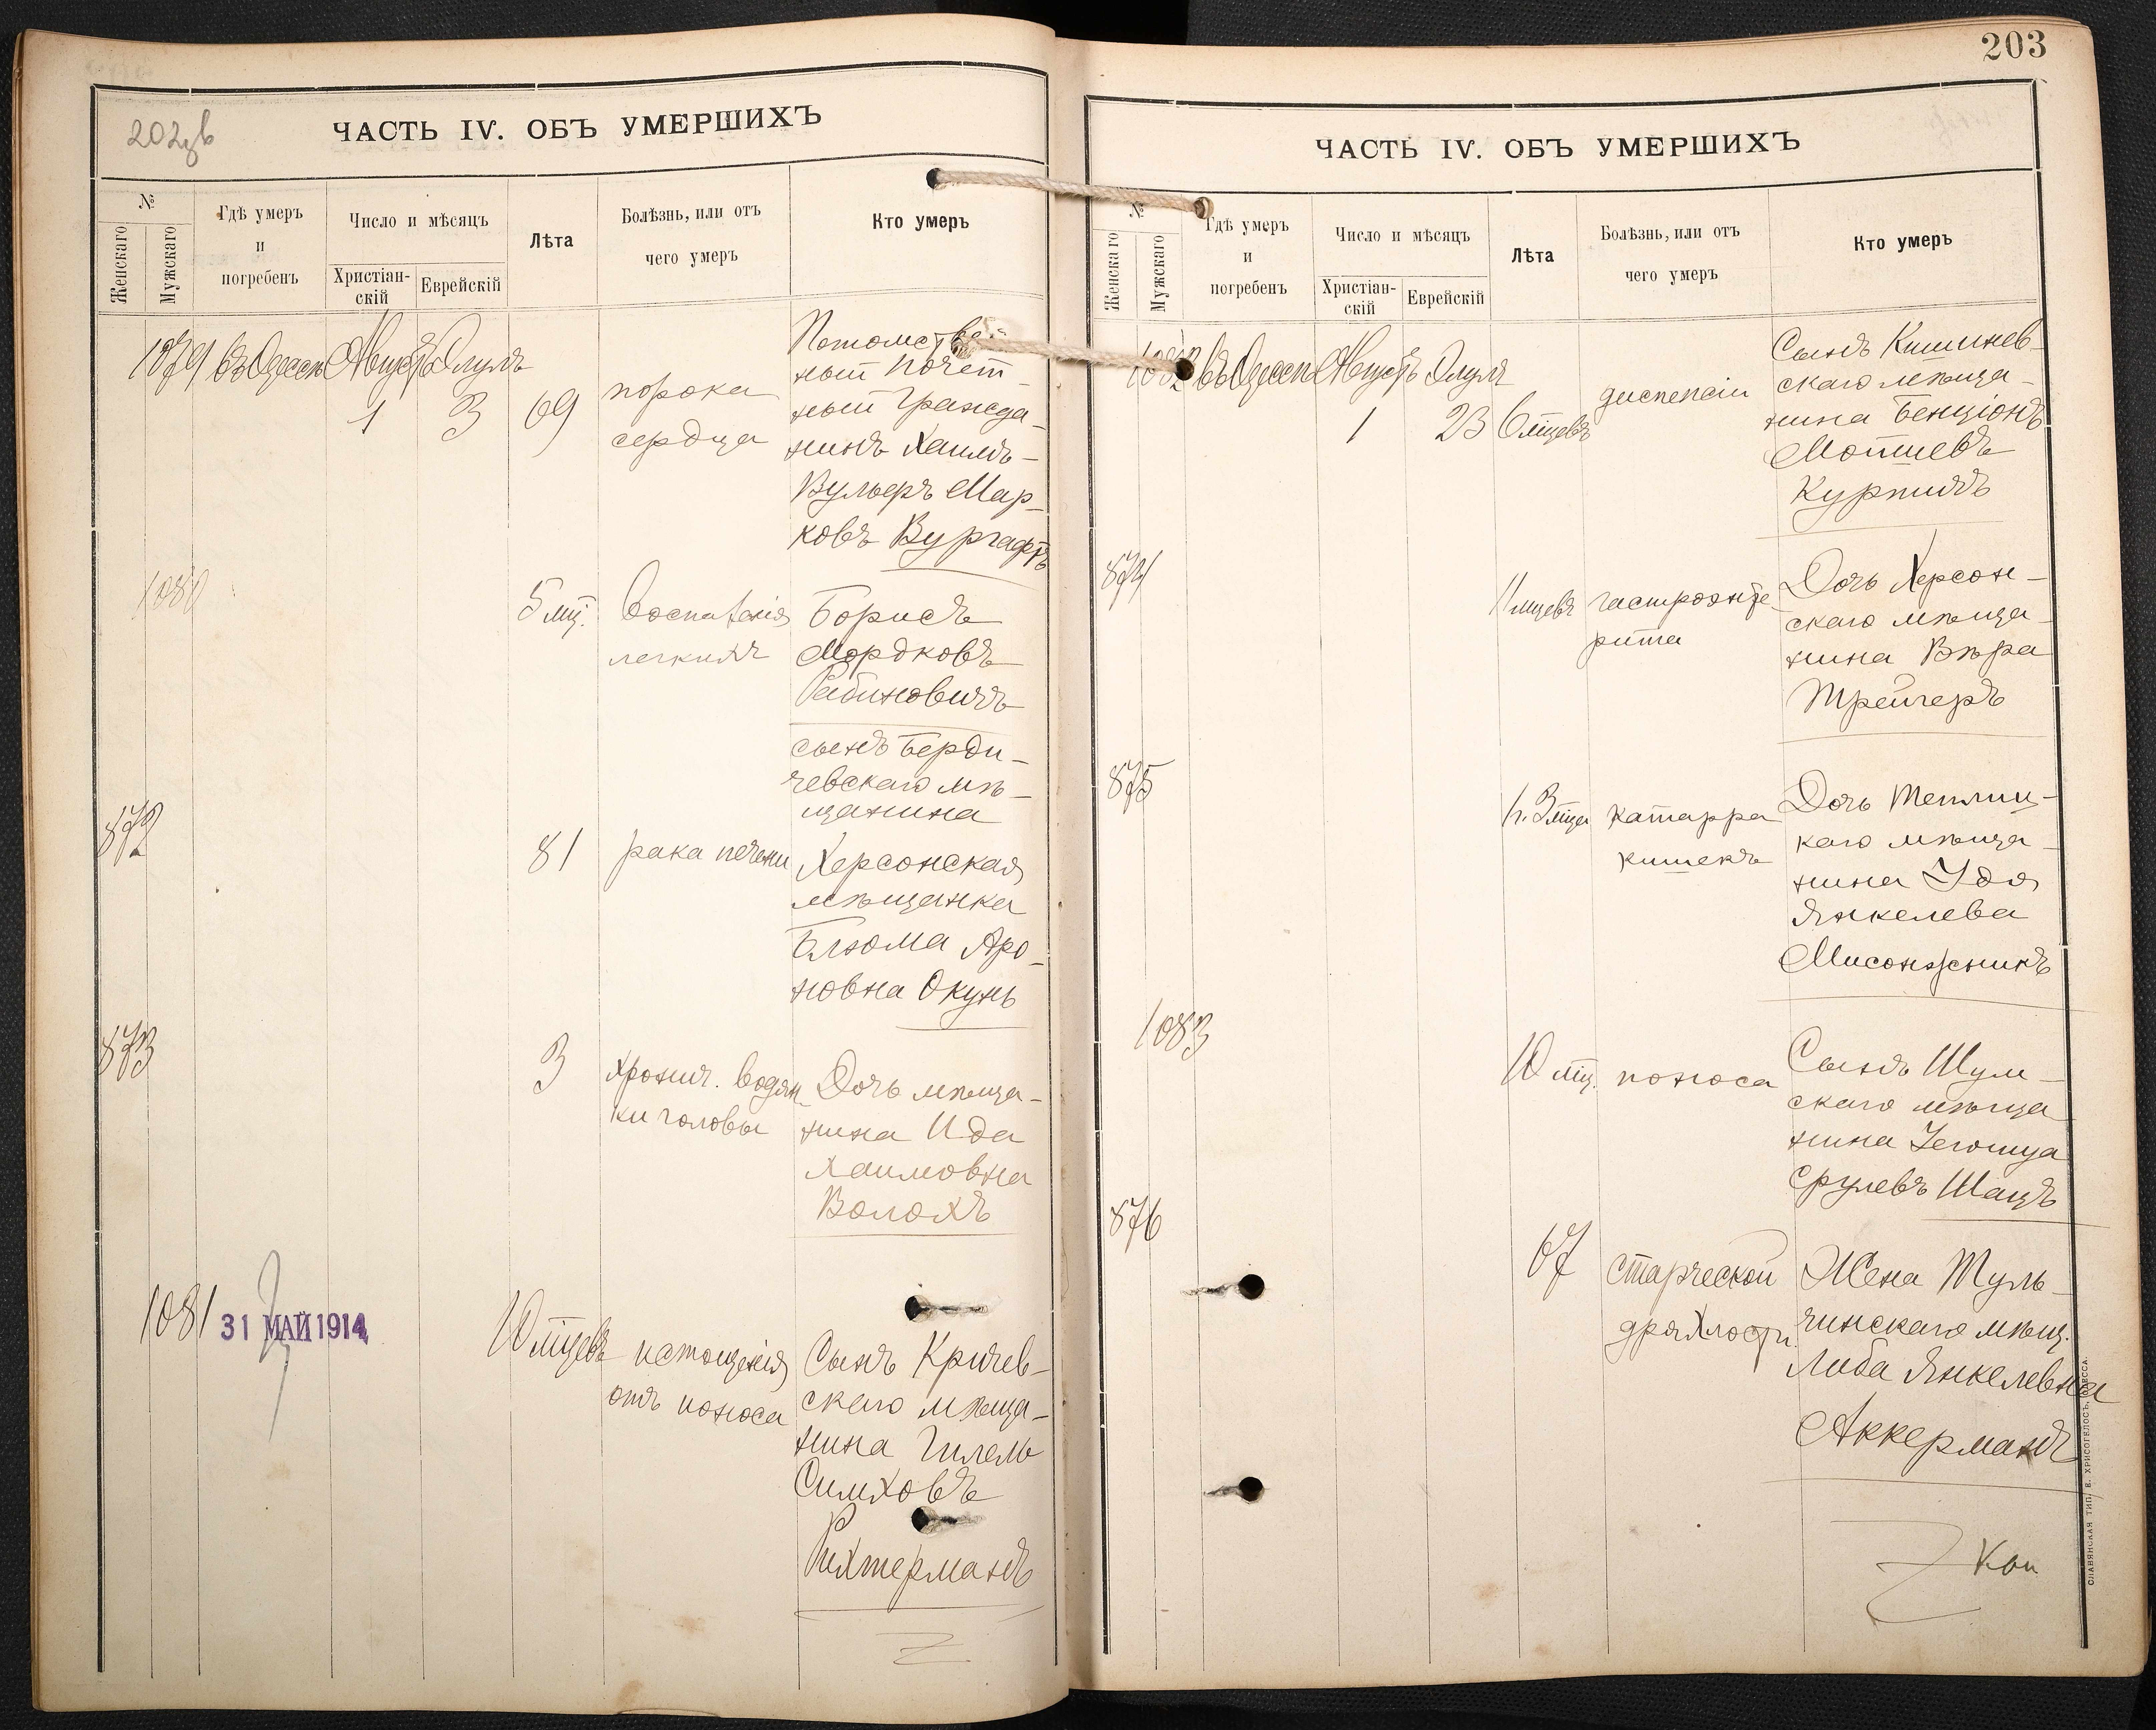 202зв
ЧАСТЬ IV. ОБЪ УМЕРШИХЪ
№
Женскаго
Мужскаго
Гдѣ умеръ
и
погребенъ
Число и мѣсяцъ
Христіан-
скій
Еврейскій
Лѣта
Болѣзнь, или отъ
чего умеръ
Кто умеръ
1079 въ Одессѣ Августъ Элулъ
1 3 69
порока
сердца
Потомствен-
ный почет-
ный гражда-
нинъ Хаимъ-
Вульфъ Мар-
ковъ Вургафтъ
1080
5 мц.
воспаленія
легкихъ
Борисъ
Мордковъ
Рабиновичъ
сынъ Берди-
чевскаго мѣ-
щанина
872
81
рака печени
Херсонская
мѣщанка
Блюма Аро-
новна Окунь
873
3
хронич. водян-
ки головы
Дочь мѣща-
нина Ида
Хаимовна
Волохъ
1081
31 МАЙ 1914
10 мцевъ
истощенія
отъ поноса
Сынъ Кричев-
скаго мѣща-
нина Гилель
Симховъ
Рихтерманъ
203
ЧАСТЬ IV. ОБЪ УМЕРШИХЪ
№
Женскаго
Мужскаго
Гдѣ умеръ
и
погребенъ
Число и мѣсяцъ
Христіан-
скій
Еврейскій
Лѣта
Болѣзнь, или отъ
чего умеръ
Кто умеръ
1082 въ Одессѣ Августъ Элулъ
1 23 6 мцевъ
диспепсіи
Сынъ Кишинев-
скаго мѣща-
нина Бенціонъ
Мотиевъ
874
11 мцевъ
гастроэнте-
рита
Дочь Херсон-
скаго мѣща-
нина Вѣра
Трейгеръ
875
1 г. 3 мца
катарра
кишекъ
Дочь Теплиц-
каго мѣща-
нина Удя
Янкелева
Мисонжникъ
1083
10 мц.
поноса
Сынъ Шум-
скаго мѣща-
нина Іегошуа
Срулевъ Шацъ
876
67
старческой
дряхлости
Жена Туль-
чинскаго мѣщ.
Либа Янкелевна
Аккерманъ
СЛАВЯНСКАЯ ТИП. Е. ХРИСОГЕЛОСЪ, ОДЕССА.